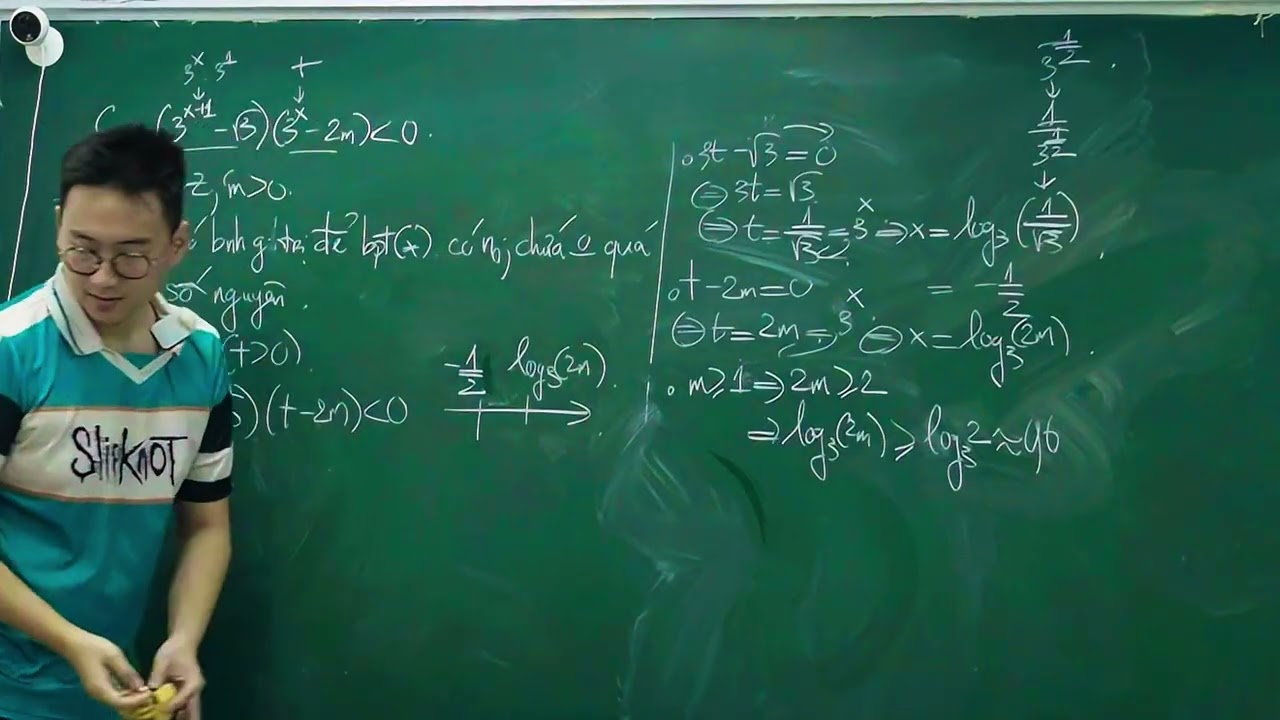 3^x . 3^1 +
↓ ↓
(3^{x+1} - √3)(3^x - 2m) < 0.
Z, m > 0.
bnh giá trị để bpt(*) có n₀, chứa o quá
số nguyên.
(t > 0)
)(t - 2m) < 0
-1/2 log₃(2m).
SlipKnoT
. 3t - √3 = 0
⇔ 3t = √3
⇔ t = 1/√3 = 3^x ⇒ x = log₃(1/√3)
= -1/2
. t - 2m = 0
⇔ t = 2m = 3^x ⇔ x = log₃(2m).
. m ≥ 1 ⇒ 2m ≥ 2
⇒ log₃(2m) ≥ log₃2 ≈ 0,6
3^{-1/2}.
↓
1/3^{1/2}
↓